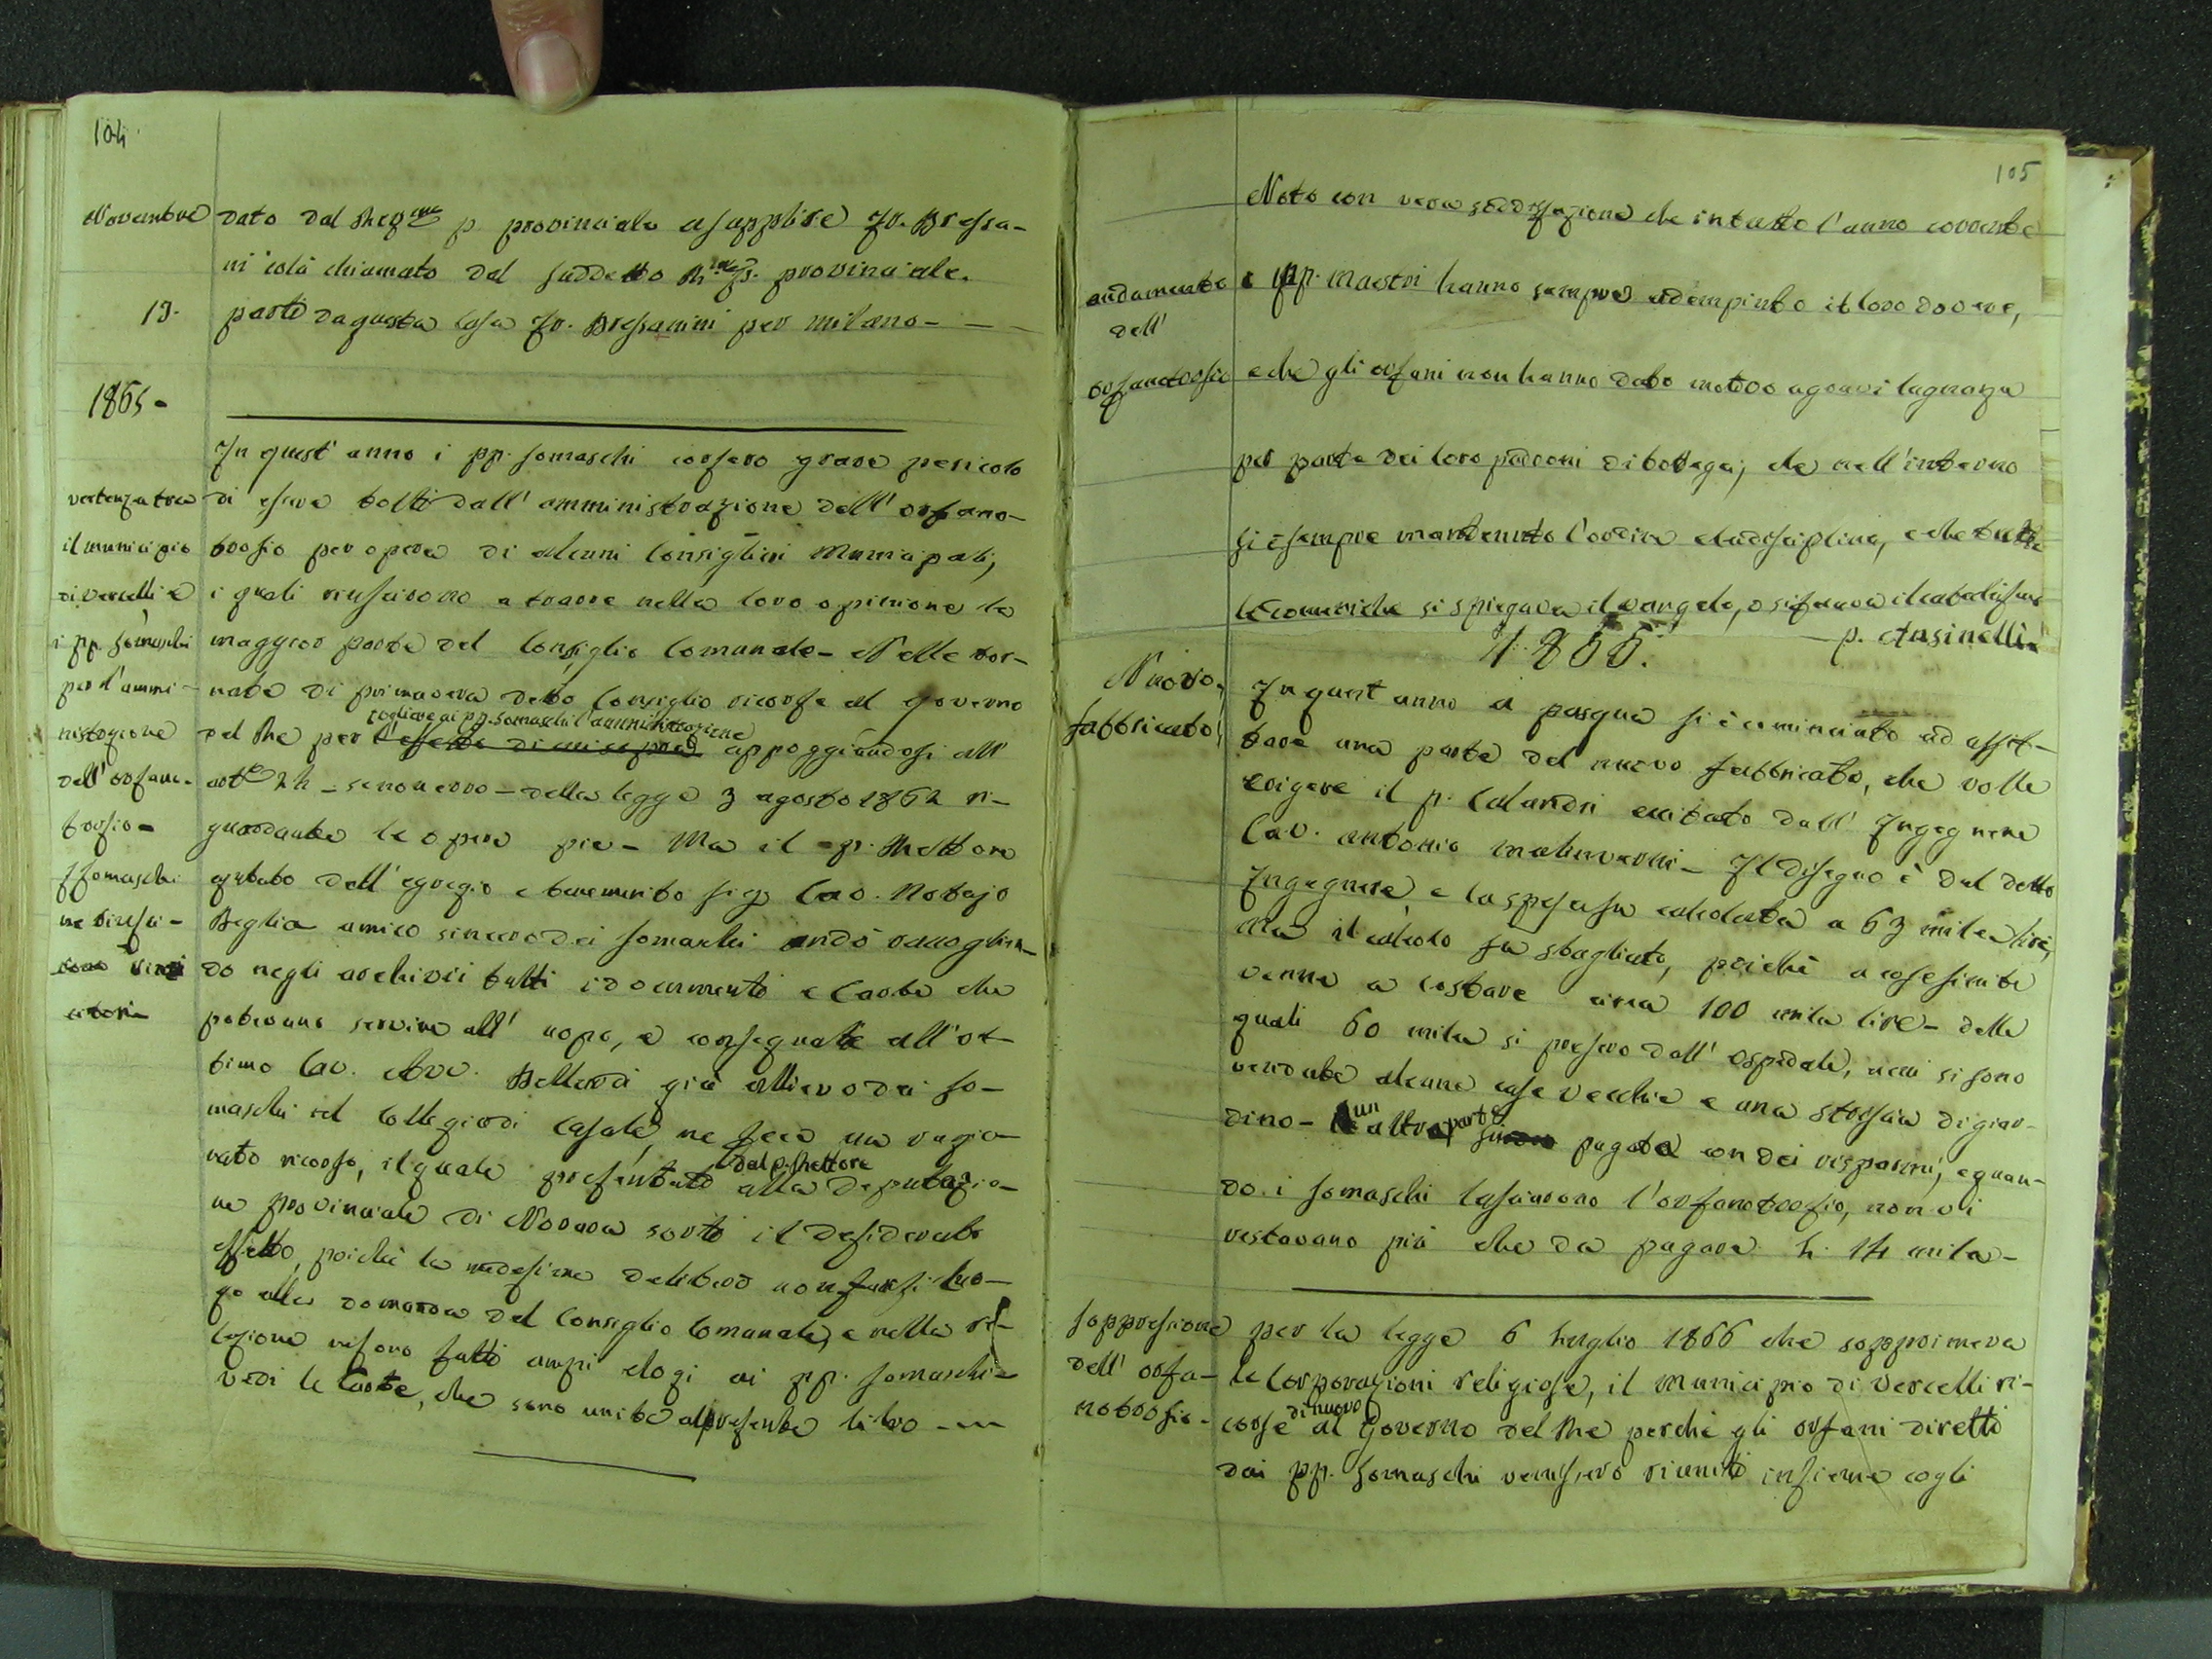 104
Novembre dato dal p. provinciale a supplire fr. Bressa-
ni colà chiamato dal suddetto p. provinciale.
19. partì da questa casa fr. Bressanini per milano-
1865-
In quest'anno i pp. somaschi corsero grave pericolo
vertenza tra di essere tolti dall'amministrazione dell'orfano-
il municipio trofio per opera di alcuni Consiglieri Municipali,
di vercelli e i quali riuscirono a trarre nella loro opinione la
i pp. somaschi maggior parte del Consiglio Comunale- Nelle tor-
per l'ammi- nate di primavera detto Consiglio ricorse al governo
togliere ai pp. somaschi l'amministrazione
nistrazione del Re per appoggiandosi all'
dell'orfano- art. 24 - se non erro - della legge 3 agosto 1862 ri-
trofio- guardante le opere pie- Ma il p. Rettore
I somaschi ajutato dall'egregio e benemerito sig. Cav. Notajo
ne riusci- Beglia amico sincero dei somaschi andò raccoglien-
do negli archivii tutti i documenti e carte che
potevano servire all'uopo, e consegnate all'ot-
timo Cav. Avv. già allievo dei so-
maschi nel Collegio di Casale, ne fece un ragio-
dal p. Rettore
nato ricorso, il quale presentato alla Deputazio-
ne provinciale di Novara sortì il desiderato
effetto, poichè la medesima deliberò non farsi luo-
go alla domanda del Consiglio Comunale, e nella re-
lazione vi sono fatti ampi elogi ai pp. somaschi-
vedi le Carte, che sono unite al presente libro -
105
Noto con vera soddisfazione che in tutto l'anno corrente
andamento i pp. Maestri hanno sempre adempiuto il loro dovere,
dell'
orfanotrofio e che gli orfani non hanno dato motivo a gravi lagnanze
per parte dei loro padroni di bottega; che nell'interno
si è sempre mantenuto l'ordine e la disciplina, e che tutte
le domeniche si spiegava il vangelo, o si faceva il catechismo
p. Ansinelli.
1866.
Nuovo In quest'anno a pasqua si è cominciato ad affit-
fabbricato tare una parte del nuovo fabbricato, che volle
erigere il p. Calandri eccitato dall'Ingegnere
Cav. Antonio Malinverni- Il disegno è del detto
Ingegnere e la spesa fu calcolata a 63 mila lire,
ma il calcolo fu sbagliato, poichè a cose finite
venne a costare circa 100 mila lire- delle
quali 60 mila si presero dall'ospedale, cui si sono
vendute alcune case vecchie e una striscia di giar-
dino- un'altra parte fu pagata con dei risparmi, e quan-
do i somaschi lasciarono l'orfanotrofio, non vi
restavano più che da pagare L. 14 mila-
soppressione per la legge 6 luglio 1866 che sopprimeva
dell'orfa- le Corporazioni religiose, il Municipio di Vercelli ri-
notrofio- corse di nuovo al Governo del Re perchè gli orfani diretti
dai pp. Somaschi venissero riuniti insieme cogli